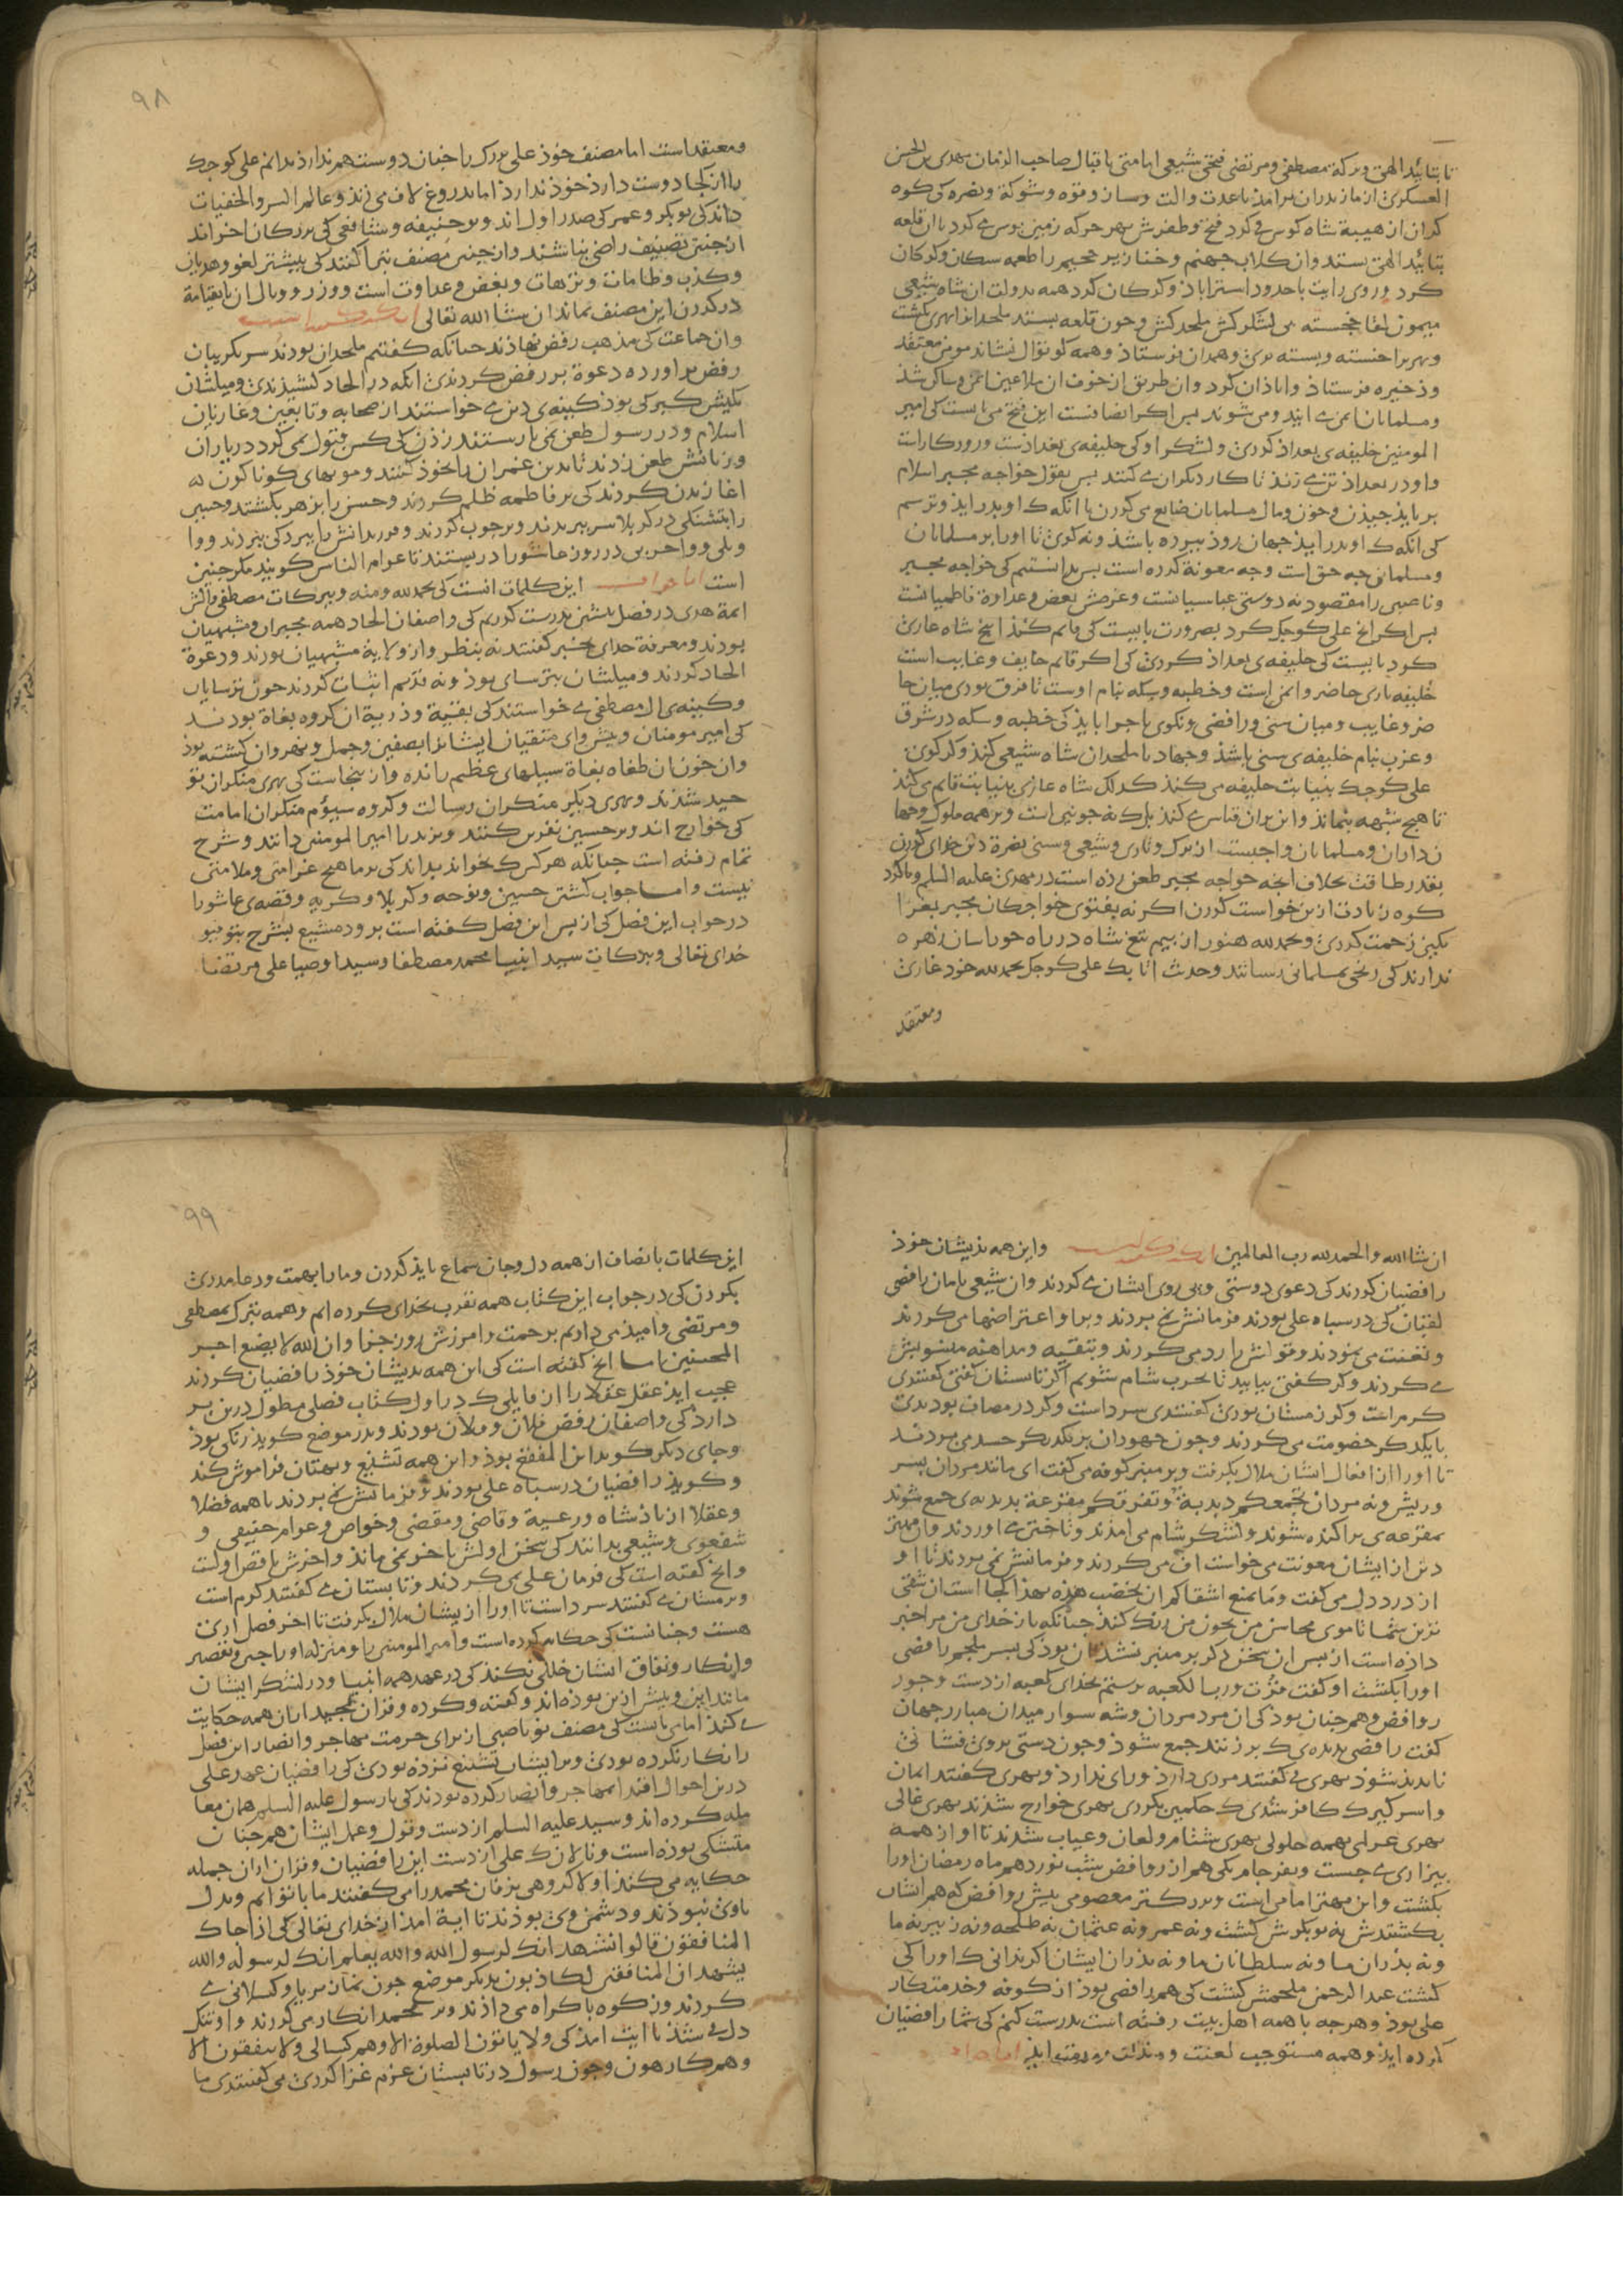 تا بتائید الهی و برکة مصطفی و مرتضی فتحی شیعی امامتی باقبال صاحب الزمان مهدی بن الحسن
العسکری از مازندران برآمذ باعدت و آلت و ساز و قوه و شوکة و نصره کی کوه
کران از هیبة شاه کوس فرو کرد فتح و ظفرش بهر حرکه زمین بوس می کرد تا آن قلعه
بتائید الهی بستد و آن کلاب جهنم و خنازیر جحیم را طعمه سکان و کرکان
کرد و روی رایت با حدود استراباذ و کرکان کرد همه بدولت آن شاه شیعی
میمون لقا خجسته پی لشکرکش ملحدکش و جون قلعه بستد ملحدانرا بهری بکشت
و بهری را خسته و بسته بری و همدان فرستاذ و همه کوتوال نشاند مومن معتقد
و ذخیره فرستاذ و اباذان کرد و آن طریق از خوف آن ملاعین ایمن و ساکن شذ
و مسلمانان ایمن می آیند و می شوند بس اکر انصافست این فتح می بایست کی امیر
المومنین خلیفه ی بغداذ کردی و لشکر او کی خلیفه ی بغداذست و روزکار راست
و او در بغداذ تن می زند تا کار دیکران می کنند بس بقول خواجه مجبر اسلام
بر بایذ جیذن و خون و مال مسلمانان ضایع می کردن تا آنکه ک او بدر آیذ و ترسم
کی آنکه ک او بدر آیذ جهان روذ ببرده باشذ و نه کوئی تا او را بر مسلمانان
و مسلمانی جه حق است و جه معونة کرده است بس بدانستیم کی خواجه مجبر
و ناصبی را مقصود نه دوستی عباسیانست و غرضش بغض و عداوة فاطمیانست
بس اکر آنج علی کوجک کرد بضرورت بایست کی قایم کنذ آنج شاه غازی
کرد بایست کی خلیفه ی بغداذ کردی کی اکر قایم خایف و غایب است
خلیفه باری حاضر و ایمن است و خطبه و سکه بنام اوست تا فرق بودی میان حا
ضر و غایب و میان سنی و رافضی و نکوی تا جرا بایذ کی خطبه و سکه در شرق
و غرب بنام خلیفه ی سنی باشذ و جهاد با ملحدان شاه شیعی کنذ و کر کوئی
علی کوجک بنیابت خلیفه می کنذ کذلک شاه غازی بنیابت قایم می کنذ
تا هیج شبهه بنماند و این بدان قیاس می کنذ بل ک نه جونین است و بر همه ملوک و جها
نداران و مسلمانان واجبست از ترک و تازی و شیعی و سنی نصرة دین خدای کردن
بقدر طاقت بخلاف آنجه خواجه مجبر طعن زده است در مهدی علیه السلم و تا کرد
کوه زیادت ازین خواست کردن اکر نه بفتوی خواجکان مجبر بغزا
یکین زحمت کردی و بحمدلله هنوز از بیم تیغ شاه در راه خوراسان زهره
ندارند کی رنجی بمسلمانی رسانند و حدیث اتابک علی کوجک بحمدلله خود غازی
و معتقد
۹۸
و معتقد است اما مصنف خوذ علی بزرک را جنان دوست هم ندارذ بدانم علی کوجک
را از کجا دوست دارذ خوذ ندارذ اما بدروغ لاف می زنذ و عالم السر و الخفیات
داند کی بوبکر و عمر کی صدر اول اند و بوحنیفه و شافعی کی بزرکان آخراند
از جنین تصنیف راضی نباشند و از جنین مصنف تبرا کنند کی بیشتر لغو و هذیان
و کذب و طامات و ترهات و بغض و عداوت است و وزر و وبال آن تا بقیامة
در کردن این مصنف بماند ان شا الله تعالی
و آن جماعت کی مذهب رفض نهاذند جنانکه کفتیم ملحدان بودند سر بکریبان
رفض برآورده دعوة بر رفض کردندی آنکه در الحاد کشیذندی و میلشان
بکیش کبرکی بوذ کینه ی دین می خواستند از صحابه و تابعین و غازیان
اسلام و در رسول طعن نمی یارستند زذن کی کس قبول نمی کرد در یاران
و زنانش طعن زدند تا بدین غمران را بخوذ کشند و مویهای کوناکون
آغازیدن کردند کی بر فاطمه ظلم کردند و حسن را بزهر بکشتند و حسین
را بتشنکی در کربلا سر ببریدند و بر جوب کردند و فرزندانش را ببردکی ببردند و وا
ویلی و واحربی در روز عاشورا دربستند تا عوام الناس کویند مکر جنین
است اما جواب این کلمات آنست کی بحمدلله و منه و ببرکات مصطفی و آلش
ائمة هدی در فصل بیشین بدرست کردیم کی واضعان الحاد همه مجبران و مشبهیان
بودند و معرفة خدای بخبر کفتند نه بنظر و از ولایة مشبهیان بودند و دعوة
الحاد کردند و میلشان بترسای بوذ و نه قدیم اثبات کردند جون ترسایان
و کینه ی آل مصطفی می خواستند کی بقیة و ذریة آن کروه بغاة بودند
کی امیر مومنان و بیشوای متقیان ایشانرا بصفین و جمل و نهروان کشته بوذ
و آن خون آن طغاه بغاة سیلهای عظیم رانده و از ینجاست کی بهری منکران تو
حید شذند و بهری دیکر منکران رسالت و کروه سیوم منکران امامت
کی خوارج اند و بر حسین نفرین کنند و یزید را امیرالمومنین دانند و شرح
تمام رفته است جنانکه هر کس ک بخواند بداند کی بر ما هیج غرامتی و ملامتی
نیست و اما جواب کشتن حسین و نوحه و کربلا و کریه و قصه ی عاشورا
در جواب این فصل کی از بس این فصل کفته است برود مشبع بشرح بتوفیق
خدای تعالی و ببرکات سید انبیا محمد مصطفا و سید اوصیا علی مرتضا
ان شا الله و الحمد لله رب العالمین و این همه بذیشان خوذ
رافضیان کردند کی دعوی دوستی و بی روی ایشان می کردند و آن شیعی نامان رافضی
لقبان کی در سباه علی بودند فرمانش نمی بردند و بر او اعتراضها می کردند
و تعنت می نمودند و قولش را رد می کردند و بتقیه و مداهنه منسوبش
می کردند و کر کفتی بیایید تا بحرب شام شویم اکر تابستان کفتی کفتندی
کرماست و کر زمستان بودی کفتندی سرداست و کر در مصاف بودندی
با یکدکر خصومت می کردند و جون جهودان بر یکدیکر حسد می بردند
تا او را از افعال ایشان ملال بکرفت و بر منبر کوفه می کفت ای مانند مردان بسر
و ریش و نه مردان تجمعکم دبدبة و تفرقکم مقزعة بدبدبه ی جمع شوند
بمقرعه ی براکنده شوند و لشکر شام می آمذند و تاختن می آوردند و آن مهتر
دین از ایشان معونت می خواست اف می کردند و فرمانش نمی بردند تا او
از درد دل می کفت و ما یمنع اشقاکم ان یخضب هذه بهذا کجا است آن شقی
ترین شما تا موی محاسن من بخون من رنک کند جنانکه بار خدای من مرا خبر
داذه است از بس این سخن دکر بر منبر نشذ آن بوذ کی بسر ملجم رافضی
او را بکشت او کفت فزت و رب الکعبه برستم بخدای کعبه از دست و جور
روافض و همجنان بوذ کی آن مرد مردان و شه سوار میدان مبارز جهان
کفت رافضی بدبده ی ک برزنند جمع شوذ و جون دستی بروی فشانی
نابدید شوذ بهری می کفتند مردی دارذ و رای ندارذ و بهری کفتند ایمان
و اسر کیرک کافر شدی ک حکمین بکردی بهری خوارج شذند بهری غالی
بهری عدلی بهمه حلولی بهری شتام و لعان و عیاب شذند تا او از همه
بیزاری می جست و بفرجام یکی هم از روافض شب نوزدهم ماه رمضان او را
بکشت و این مهتر اما می بایست و بزرکتر معصومی بیش روافض ک هم ایشان
بکشتندش نه بوبکرش کشت و نه عمر و نه عثمان نه طلحه و نه زبیر نه ما
و نه بدران ما و نه سلطانان ما و نه بذران ایشان اکر ندانی ک او را کی
کشت عبدالرحمن ملجمش کشت کی هم رافضی بوذ از کوفه و خدمتکار
علی بوذ و هرجه با همه اهل بیت رفته است بدرست کنم کی شما رافضیان
کرده ایذ و همه مستوجب لعنت و مذلت و عقوبت ایذ اما جواب
۹۹
این کلمات بانصاف از همه دل و جان سماع بایذ کردن و ما را بهمت و دعا مددی
بکردن کی در جواب این کتاب همه تقرب بخدای کرده ایم و همه تبرک بمصطفی
و مرتضی و امیذ می داریم برحمت و آمرزش روز جزا و ان الله لا یضیع اجر
المحسنین اما آنج کفته است کی این همه بدیشان خوذ رافضیان کردند
عجب آیذ عقل عقلا را از قایلی ک در اول کتاب فصلی مطول درین بر
دارد کی واضعان رفض فلان و فلان بودند و بدر موضع کویذ زنکی بوذ
و جای دیکر کوید ابن المقفع بوذ و این همه تشنیع و بهتان فراموش کند
و کویذ رافضیان در سباه علی بودند و فرمانش نمی بردند تا همه فضلا
و عقلا از باذشاه و رعیة و قاضی و مقضی و خواص و عوام حنیفی و
شفعوی و شیعی بدانند کی سخن اولش بآخر نمی ماند و آخرش ناقض اولست
و آنج کفته است کی فرمان علی نمی کردند و تابستان می کفتند کرم است
و زمستان می کفتند سرد است تا او را ازیشان ملال بکرفت تا آخر فصل آری
هست و جنانست کی حکایت کرده است و امیر المومنین را و منزله او را جبر و تقصیر
و انکار و نفاق ایشان خللی نکند کی در عهد همه انبیا و در لشکر ایشان
مانند این و بیش ازین بوذه اند و کفته و کرده و قرآن مجید از ان همه حکایت
می کند اما می بایست کی مصنف نوناصبی از برای حرمت مهاجر و انصار این فصل
را انکار نکرده بودی و بر ایشان تشنیع نزذه بودی کی رافضیان عهد علی
درین احوال اقتدا بمهاجر و انصار کرده بودند کی با رسول علیه السلم همان معا
مله کرده اند و سید علیه السلم از دست و قول و عمل ایشان همجنان
متشکی بوذه است و نالان ک علی از دست این رافضیان و قرآن از ان جمله
حکایه می کند اولا کروهی بزفان محمد را می کفتند ما با توایم و بدل
باوی نبوذند و دشمن وی بوذند تا آیة آمذ از خدای تعالی کی اذا جاک
المنافقون قالوا نشهد انک لرسول الله و الله یعلم انک لرسوله و الله
یشهد ان المنافقین لکاذبون بدیکر موضع جون نماز بریا و کسلانی می
کردند و زکوه باکراه می داذند و بر محمد انکار می کردند و او تنک
دل می شذ تا آیت آمذ کی و لا یاتون الصلوة الا و هم کسالی و لا ینفقون الا
و هم کارهون و جون رسول در تابستان عزم غزا کردی می کفتندی ما